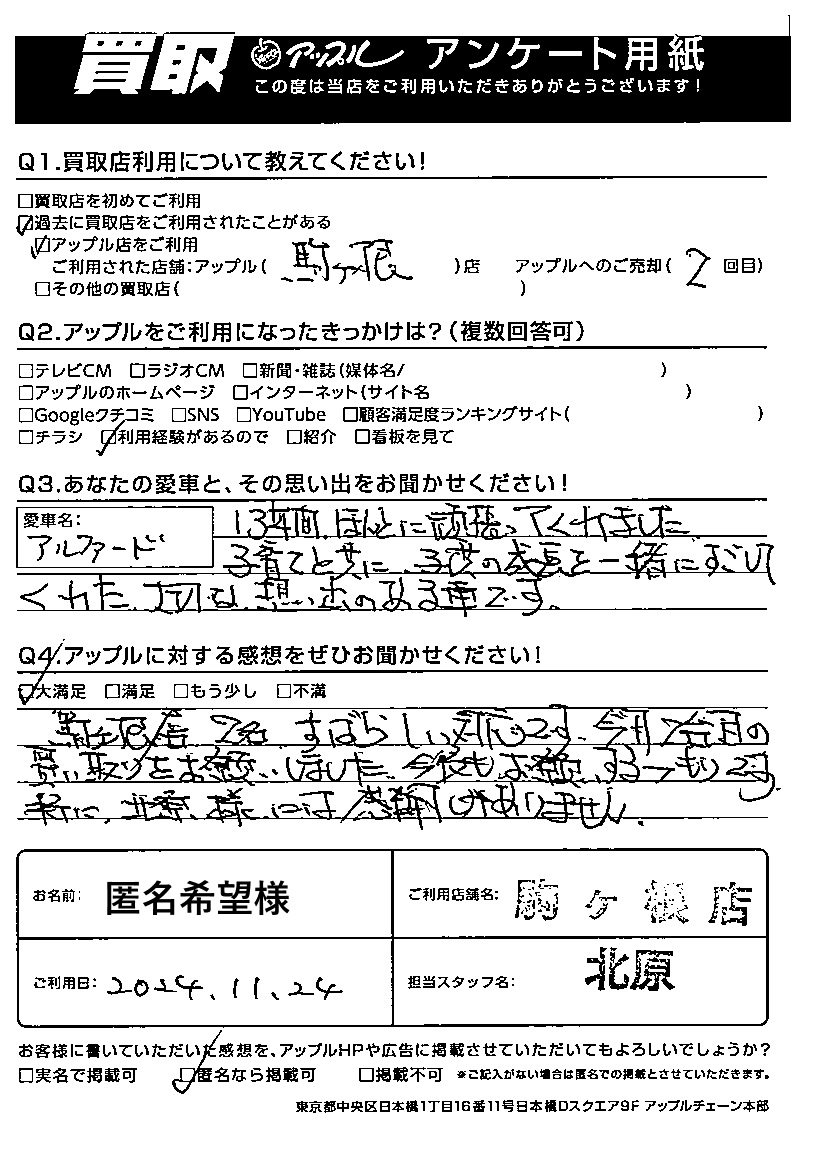 買取 アップル アンケート用紙
この度は当店をご利用いただきありがとうございます!
Q1.買取店利用について教えてください!
□買取店を初めてご利用
☑過去に買取店をご利用されたことがある
☑アップル店をご利用
ご利用された店舗:アップル( 駒ヶ根 )店 アップルへのご売却( 2 回目)
□その他の買取店( )
Q2.アップルをご利用になったきっかけは?(複数回答可)
□テレビCM □ラジオCM □新聞・雑誌(媒体名/ )
□アップルのホームページ □インターネット(サイト名 )
□Googleクチコミ □SNS □YouTube □顧客満足度ランキングサイト( )
□チラシ ☑利用経験があるので □紹介 □看板を見て
Q3.あなたの愛車と、その思い出をお聞かせください!
愛車名:
アルファード
13年間、ほんとに頑張ってくれました
子育てと共に、子供の成長と一緒にすごして
くれた、大切な想い出のある車です。
Q4.アップルに対する感想をぜひお聞かせください!
☑大満足 □満足 □もう少し □不満
駒ヶ根店 すばらしい対応です。今月2台目の
買い取りをお願いしました。今後もお願いするつもりです。
北原様には感謝しかありません。
お名前: 匿名希望様 ご利用店舗名: 駒ヶ根店
ご利用日: 2024.11.24 担当スタッフ名: 北原
お客様に書いていただいた感想を、アップルHPや広告に掲載させていただいてもよろしいでしょうか?
□実名で掲載可 ☑匿名なら掲載可 □掲載不可 ※ご記入がない場合は匿名での掲載とさせていただきます。
東京都中央区日本橋1丁目16番11号日本橋Dスクエア9F アップルチェーン本部